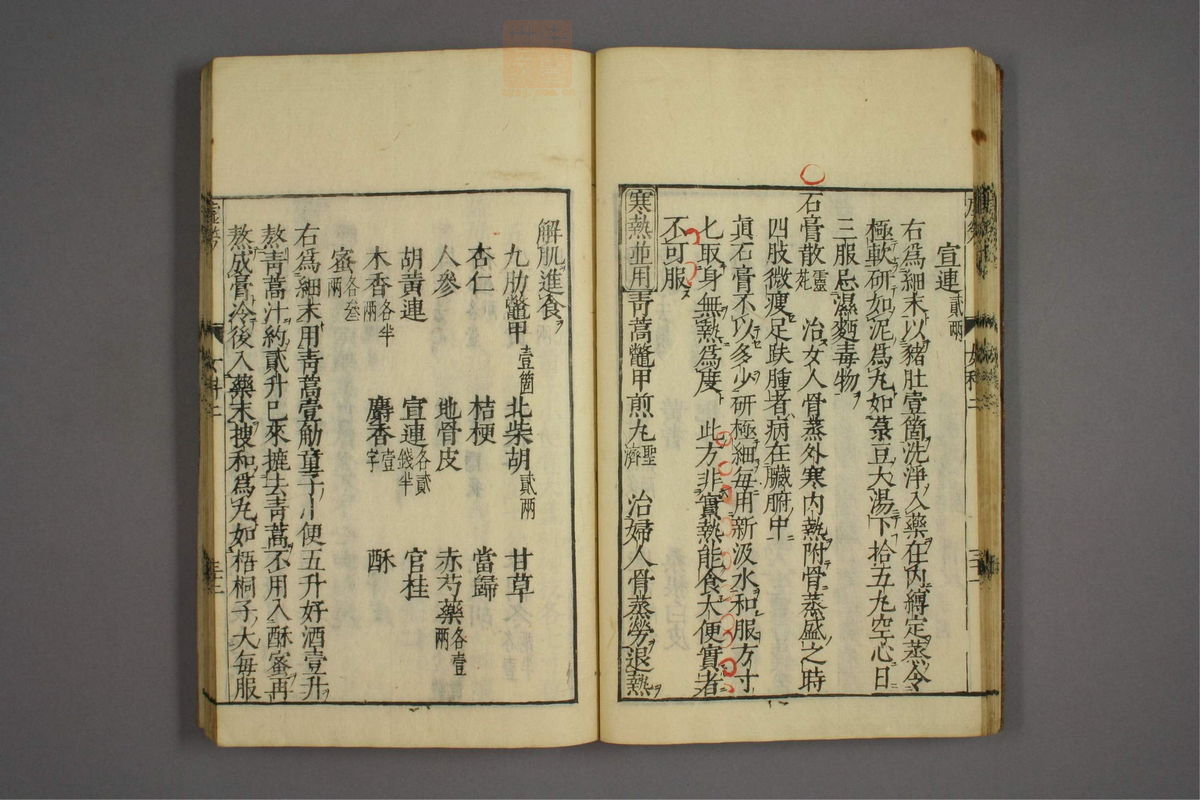 宣連貳兩
右爲細末以豬肚壹箇洗淨入藥在內縛定蒸令
極軟研如泥爲丸如菉豆大湯下拾五丸空心日
三服忌濕麪毒物
石膏散靈苑 治女人骨蒸外寒內熱附骨蒸盛之時
四肢微瘦足趺腫者病在臟腑中
眞石膏不以多少研極細每用新汲水和服方寸
七取身無熱爲度 此方非實熱能食大便實者
不可服
寒熱並用 靑蒿鼈甲煎丸聖濟 治婦人骨蒸勞退熱
解肌進食
九肋鼈甲壹箇 北柴胡貳兩 甘草
杏仁 桔梗 當歸
人參 地骨皮 赤芍藥各壹兩
胡黃連 宣連各貳錢半 官桂
木香各半兩 麝香壹字 酥
蜜各叁兩
右爲細末用靑蒿壹觔童子小便五升好酒壹升
熬靑蒿汁約貳升已來攄去靑蒿不用入酥蜜再
熬成膏冷後入藥末搜和爲丸如梧桐子大每服
女科二
女科二